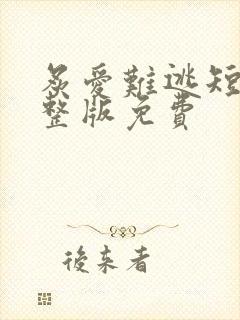 炙愛難逃短
整版免費
後来者